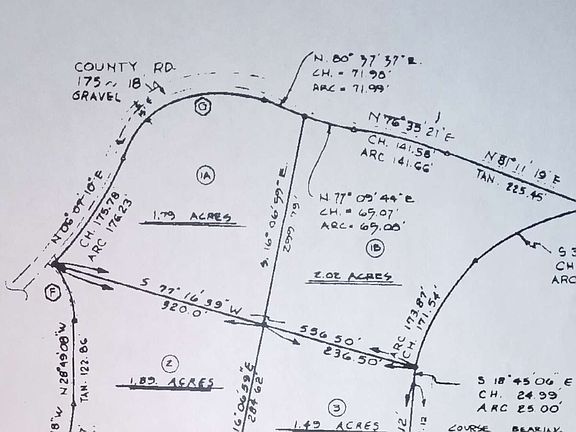 COUNTY RD.
175 18'
GRAVEL
N. 80° 37' 37" E.
CH. = 71.98'
ARC = 71.99'
N 76° 35' 21" E
CH. 141.58'
ARC 141.66'
N 81° 11' 19" E
TAN. 225.45'
N 77° 09' 44" E
CH. = 69.07'
ARC = 69.08'
1A
1.79 ACRES
1B
2.02 ACRES
N 06° 09' 10" E
CH. 175.78
ARC 176.23'
S. 16° 06' 59" E
299.79'
S 77° 16' 39" W
920.0'
536.50'
236.50'
ARC 173.87'
CH. 171.54'
S 3
CH
ARC
N 28° 49' 08" W
TAN. 122.86'
2
1.89 ACRES
16° 06' 59" E
284.62'
3
1.49 ACRES
S 18° 45' 06" E
CH. 24.99
ARC 25.00'
COURSE BEARING